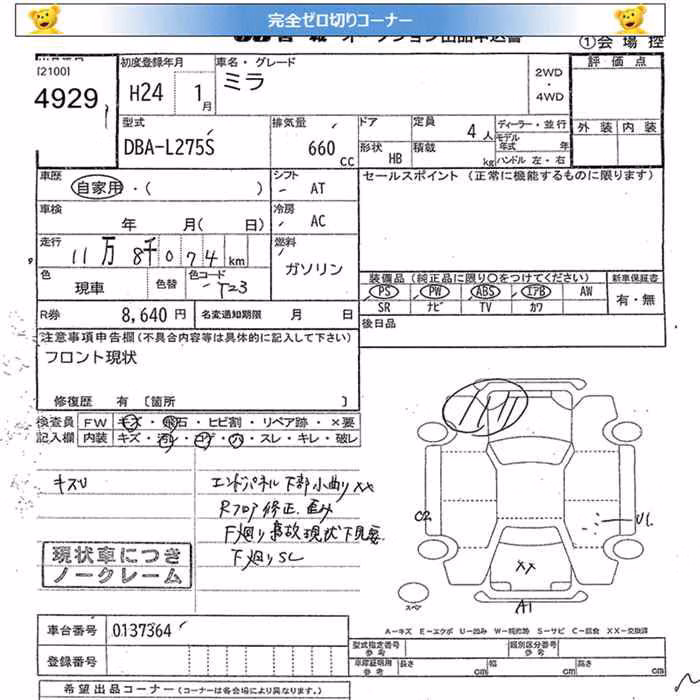 完全ゼロ切りコーナー
オークション出品申込書 ①会場控
[2100]
4929
初度登録年月 車名・グレード 評価点
H24 1月 ミラ 2WD・4WD
外装 内装
型式 排気量 ドア 定員 ディーラー・並行
DBA-L275S 660 CC 4人 モデル年式 年
形状 HB 積載 kg ハンドル 左・右
車歴 シフト セールスポイント (正常に機能するものに限ります)
自家用・( ) AT
車検 冷房
年 月( 日) AC
走行 燃料
11万8千074km ガソリン
色 色替 色コード 装備品(純正品に限り○をつけてください) 新車保証書
現車 T23 PS PW ABS エアB AW 有・無
SR ナビ TV カワ
R券 8,640円 名変通知期限 月 日 後日品
注意事項申告欄(不具合内容等は具体的に記入して下さい)
フロント現状
修復歴 有 〔箇所 〕
検査員 FW キズ・飛石・ヒビ割・リペア跡・×要
記入欄 内装 キズ・汚レ・コゲ・穴・スレ・キレ・破レ
キズU エンドパネル下部小曲りXX
Rフロア修正
F廻り事故現状下見要
下廻りSL
現状車につき
ノークレーム
C2 U1
XX
A1
スペア
A-キズ E-エクボ U-凹み W-補修跡 S-サビ C-腐食 XX-交換済
車台番号 0137364 型式指定番号 参考 類別区分番号 参考
登録番号 車庫証明用 参考 長さ cm 幅 cm 高さ cm
希望出品コーナー (コーナーは各会場により異なります。)